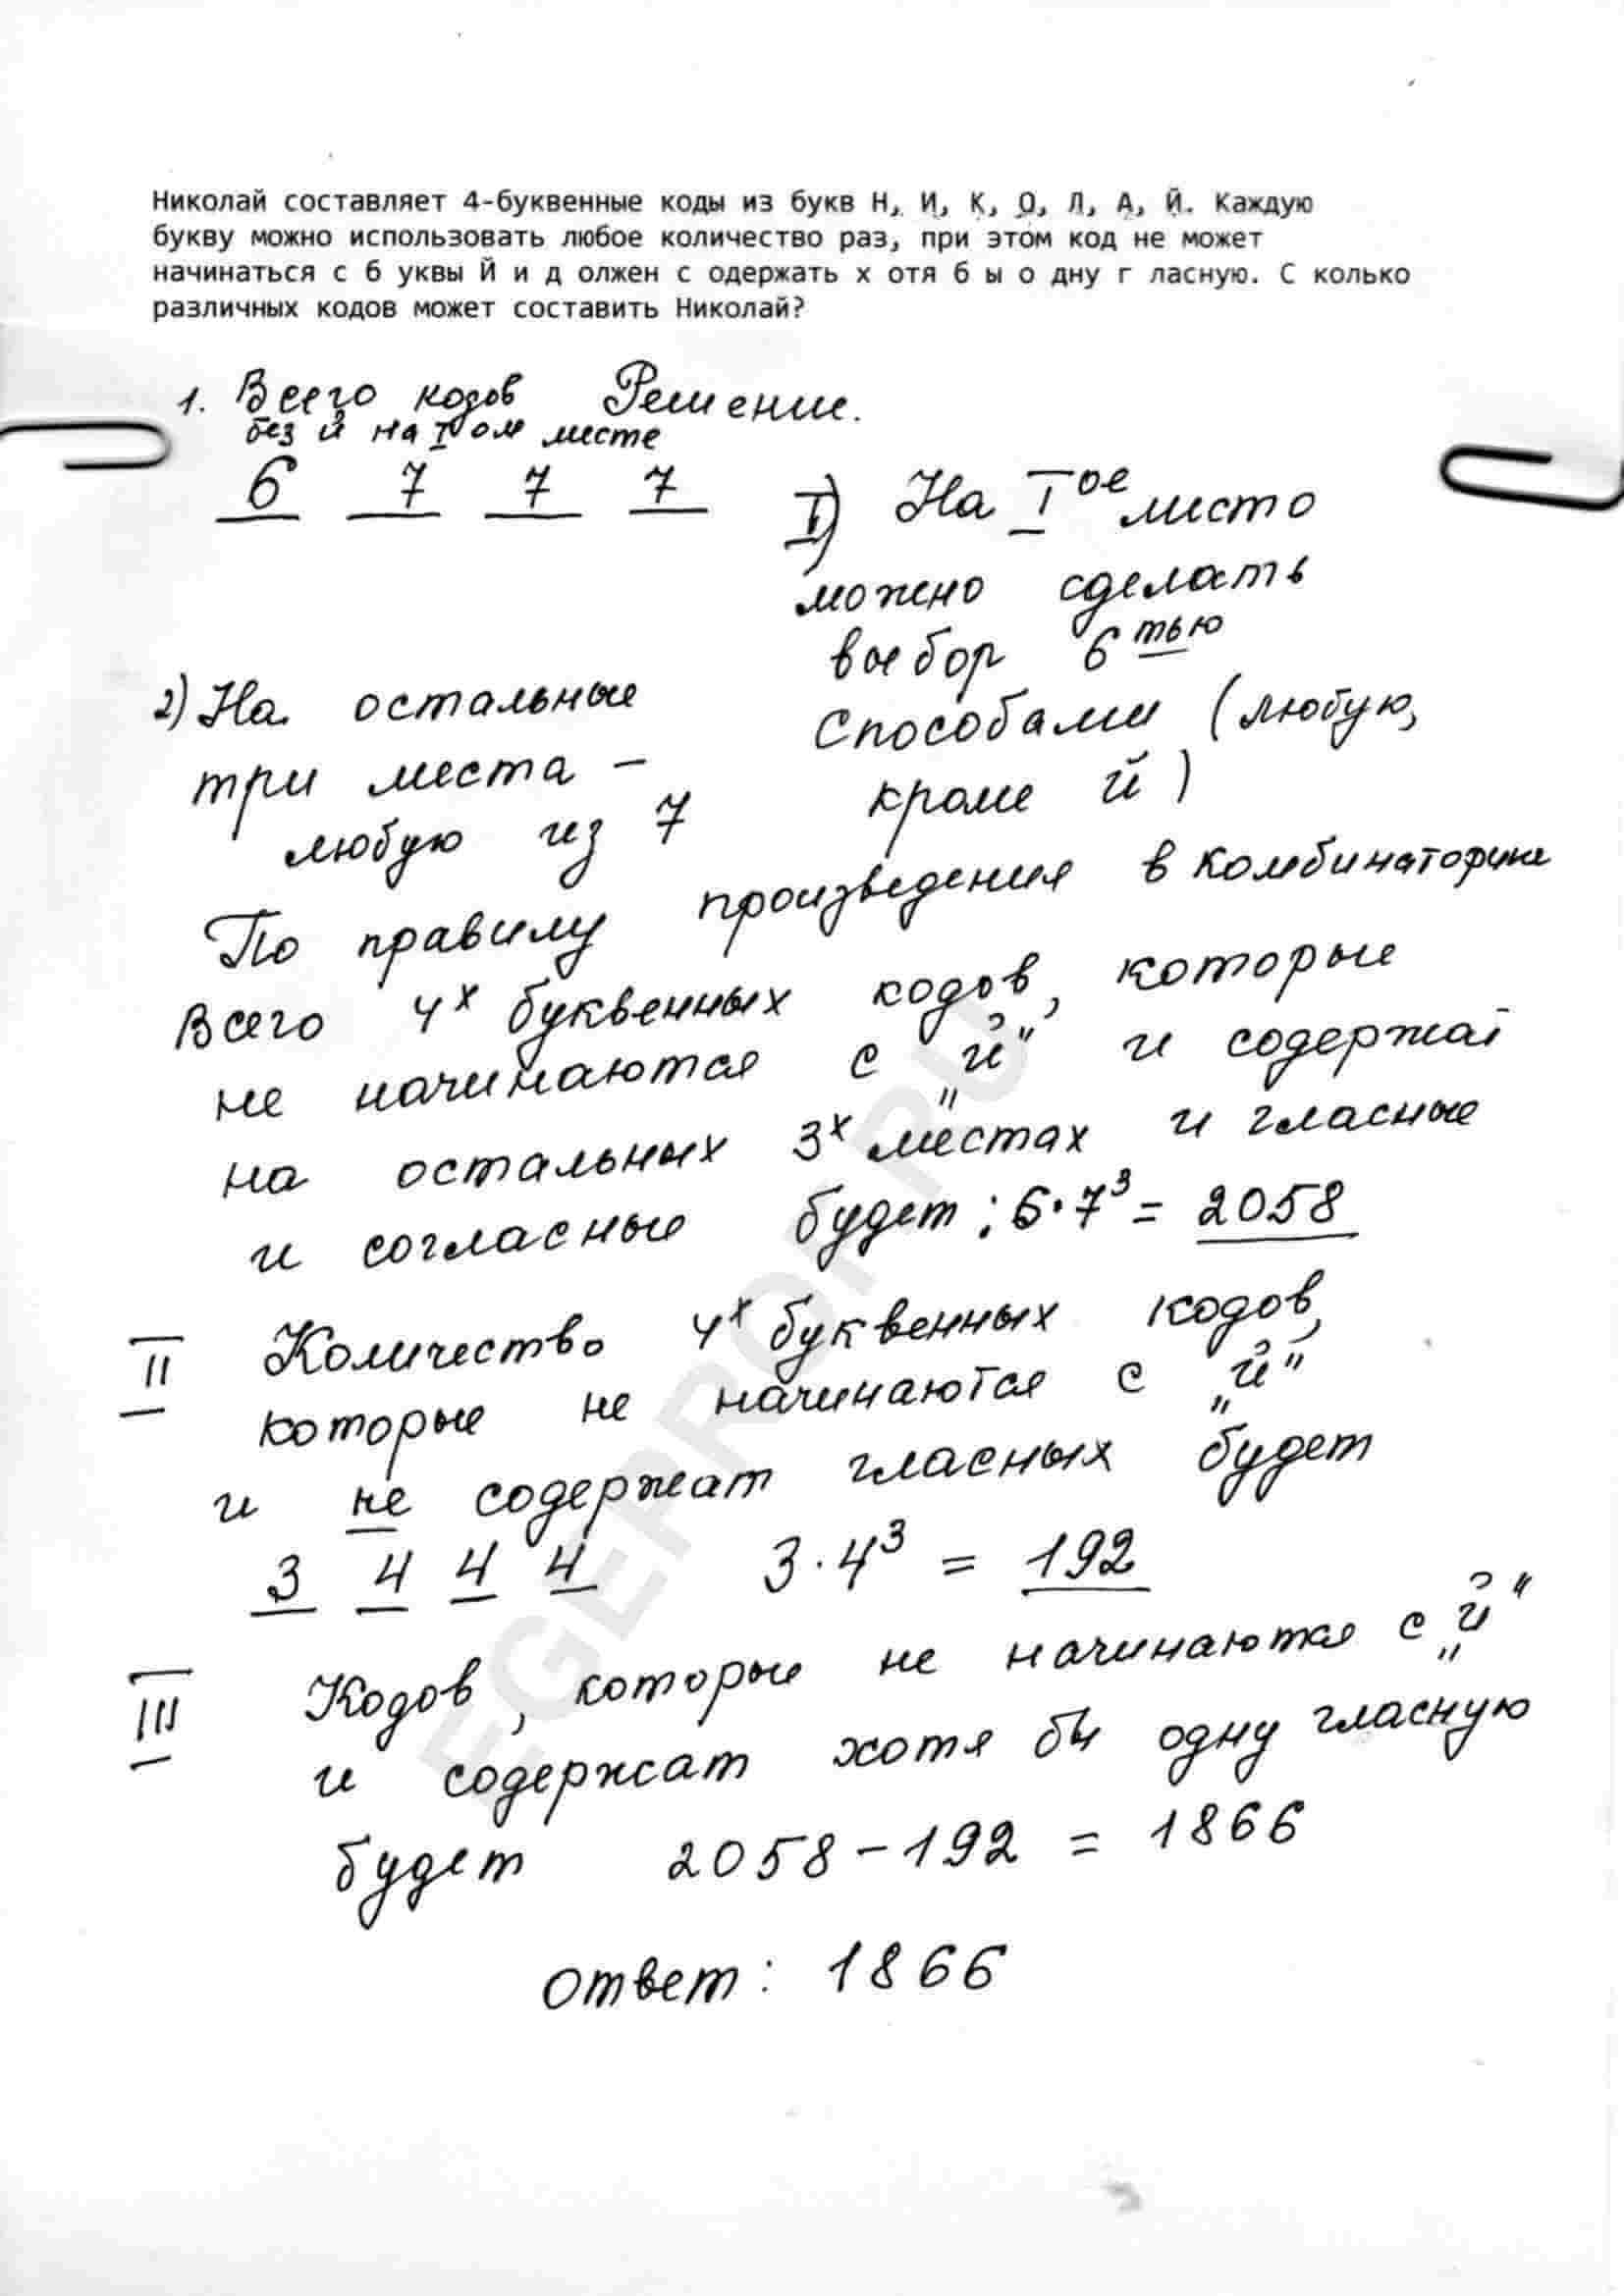 Николай составляет 4-буквенные коды из букв Н, И, К, О, Л, А, Й. Каждую
букву можно использовать любое количество раз, при этом код не может
начинаться с б уквы Й и д олжен с одержать х отя б ы о дну г ласную. С колько
различных кодов может составить Николай?
1. Всего кодов Решение.
без й на I ом месте
6 7 7 7
I) На I ое место
можно сделать
выбор 6 тью
способами (любую,
кроме й)
2) На остальные
три места –
любую из 7
По правилу произведения в комбинаторике
Всего 4х буквенных кодов, которые
не начинаются с „й“ и содержат
на остальных 3х местах и гласные
и согласные будет: 6·7³ = 2058
II Количество 4х буквенных кодов,
которые не начинаются с „й“
и не содержат гласных будет
3 4 4 4 3·4³ = 192
III Кодов, которые не начинаются с „й“
и содержат хотя бы одну гласную
будет 2058 – 192 = 1866
Ответ: 1866
EGEPROF.RU